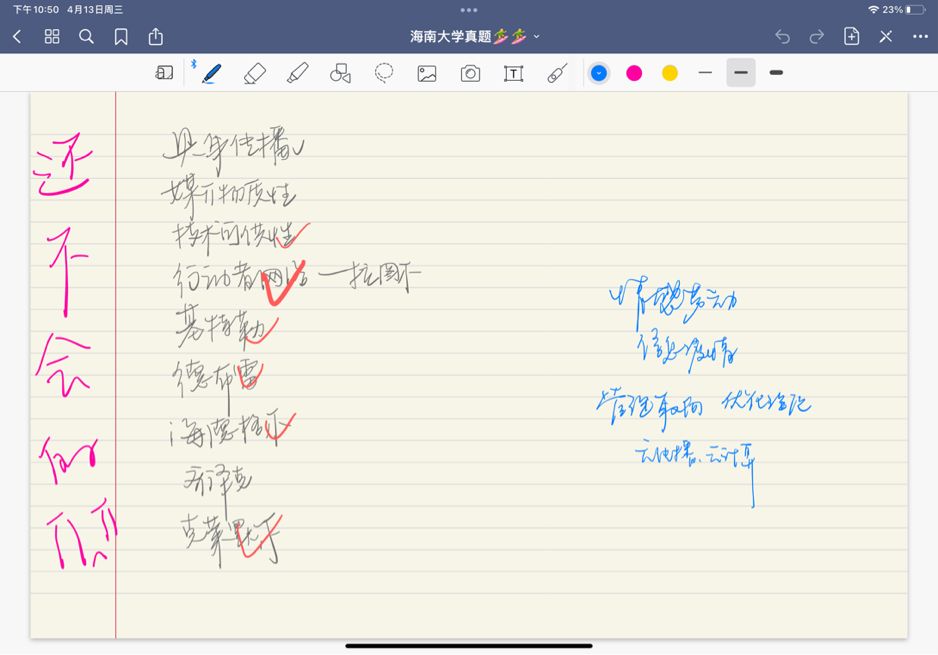 下午10:50 4月13日周三
23%
海南大学真题🏄🏄
还不会的
具身传播
媒介物质性
技术可供性
行动者网络 — 拉图尔
基特勒
德布雷
海德格尔
齐泽克
克莱默尔
情感劳动
信息疫情
管理取向 优化理论
云传播、云计算